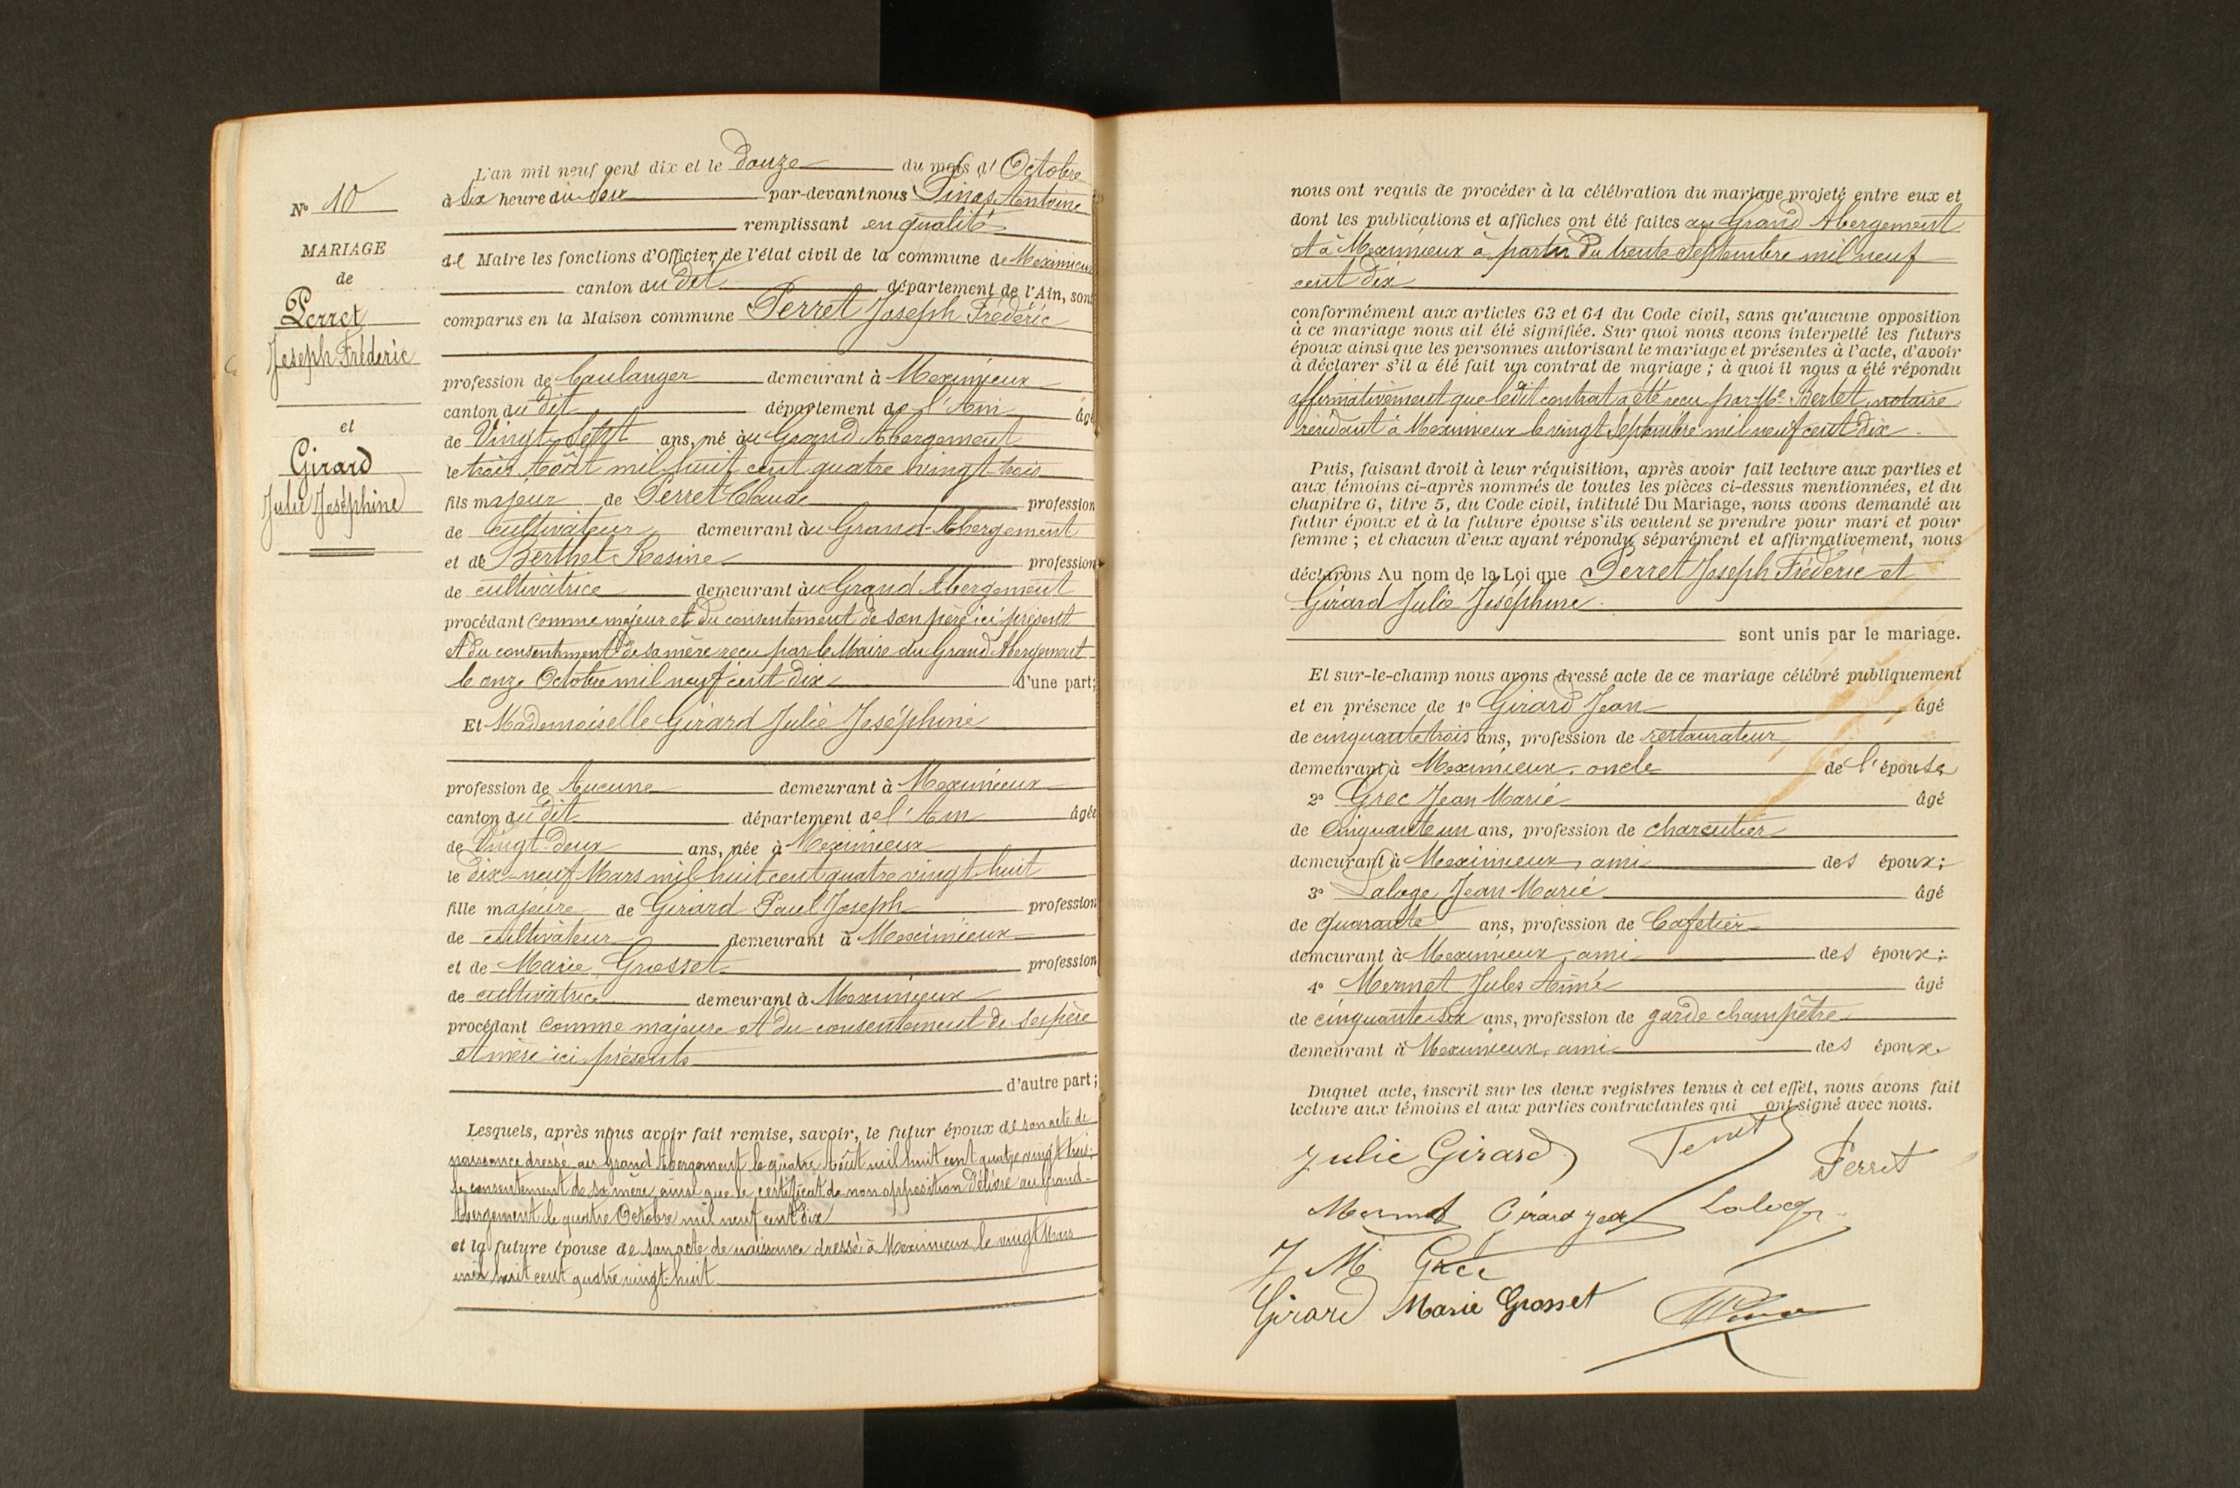 N° 10
MARIAGE
de
Perret
Joseph Fréderic
et
Girard
Julie Joséphine
L'an mil neuf cent dix et le douze du mois d' Octobre
à Six heure du soir par-devant nous Pinas Antoine
remplissant en qualité
de Maire les fonctions d'Officier de l'état civil de la commune de Meximieux
canton du dit département de l'Ain, sont
comparus en la Maison commune Perret Joseph Frédéric
profession de boulanger demeurant à Meximieux
canton du dit département de l'Ain âgé
de Vingt Sept ans, né au Grand Abergement
le trois Août mil huit cent quatre vingt trois
fils majeur de Perret Claude profession
de cultivateur demeurant au Grand-Abergement
et de Berthet Rosine profession
de cultivatrice demeurant au Grand Abergement
procédant comme majeur et du consentement de son père ici présent
et du consentement de sa mère reçu par le Maire du Grand Abergement
le onze Octobre mil neuf cent dix d'une part;
Et Mademoiselle Girard Julie Joséphine
profession de Aucune demeurant à Meximieux
canton du dit département de l'Ain âgée
de Vingt deux ans, née à Meximieux
le dix-neuf Mars mil huit cent quatre vingt huit
fille majeure de Girard Paul Joseph profession
de cultivateur demeurant à Meximieux
et de Marie Grosset profession
de cultivatrice demeurant à Meximieux
procédant comme majeure et du consentement de ses père
et mère ici présents
d'autre part;
Lesquels, après nous avoir fait remise, savoir, le futur époux de son acte de
naissance dressé au Grand Abergement le quatre Août mil huit cent quatre vingt trois;
le consentement de sa mère, ainsi que le certificat de non opposition délivré au Grand-
Abergement le quatre Octobre mil neuf cent dix
et la future épouse de son acte de naissance dressé à Meximieux le vingt Mars
mil huit cent quatre vingt-huit
nous ont requis de procéder à la célébration du mariage projeté entre eux et
dont les publications et affiches ont été faites au Grand Abergement
et à Meximieux à partir du trente Septembre mil neuf
cent dix
conformément aux articles 63 et 64 du Code civil, sans qu'aucune opposition
à ce mariage nous ait été signifiée. Sur quoi nous avons interpellé les futurs
époux ainsi que les personnes autorisant le mariage et présentes à l'acte, d'avoir
à déclarer s'il a été fait un contrat de mariage ; à quoi il nous a été répondu
affirmativement que ledit contrat a été reçu par Me Bertet, notaire
résidant à Meximieux le vingt Septembre mil neuf cent dix.
Puis, faisant droit à leur réquisition, après avoir fait lecture aux parties et
aux témoins ci-après nommés de toutes les pièces ci-dessus mentionnées, et du
chapitre 6, titre 5, du Code civil, intitulé Du Mariage, nous avons demandé au
futur époux et à la future épouse s'ils veulent se prendre pour mari et pour
femme ; et chacun d'eux ayant répondu séparément et affirmativement, nous
déclarons Au nom de la Loi que Perret Joseph Fréderic et
Girard Julie Joséphine
sont unis par le mariage.
Et sur-le-champ nous avons dressé acte de ce mariage célébré publiquement
et en présence de 1° Girard Jean âgé
de cinquante trois ans, profession de restaurateur
demeurant à Meximieux, oncle de l'épouse
2° Grec Jean Marie âgé
de Cinquante un ans, profession de charcutier
demeurant à Meximieux, ami des époux;
3° Laloge Jean Marie âgé
de quarante ans, profession de Cafetier
demeurant à Meximieux, ami des époux;
4° Mermet Jules Aimé âgé
de cinquante six ans, profession de garde champêtre
demeurant à Meximieux, ami des époux
Duquel acte, inscrit sur les deux registres tenus à cet effet, nous avons fait
lecture aux témoins et aux parties contractantes qui ont signé avec nous.
Julie Girard Perret Perret
Mermet Girard Jean Laloge
J M Grec
Girard Marie Grosset